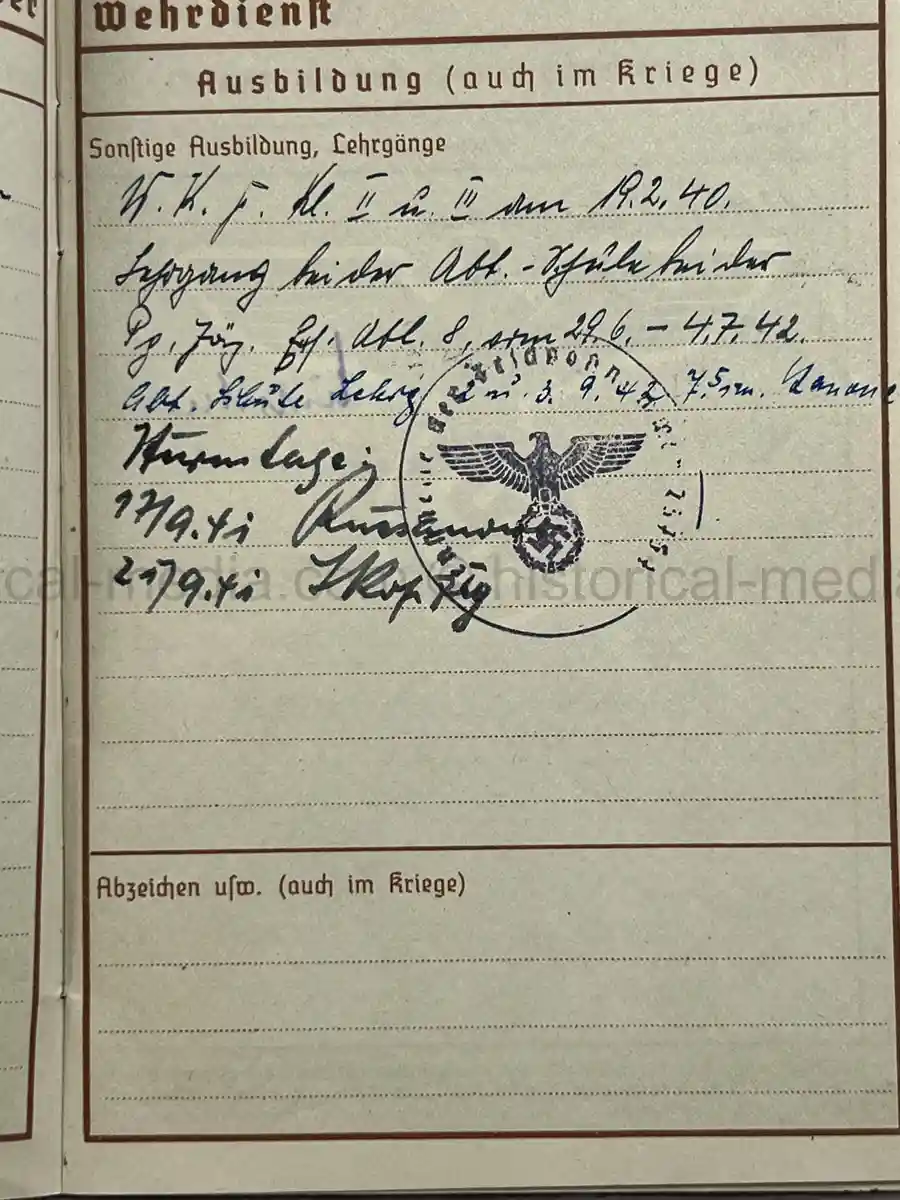 Wehrdienst
Ausbildung (auch im Kriege)
Sonstige Ausbildung, Lehrgänge
W. K. F. Kl. II u. III am 19.2.40.
Lehrgang bei der Abt.-Schule bei der
Pz. Jäg. Ers. Abt. 8, vom 29.6. - 4.7.42.
Abt. Schule Lehrg 2 u. 3. 9. 42 7,5 cm. Kanone
Sturmtage:
17/9.41
21/9.41
historical-media
Abzeichen usw. (auch im Kriege)